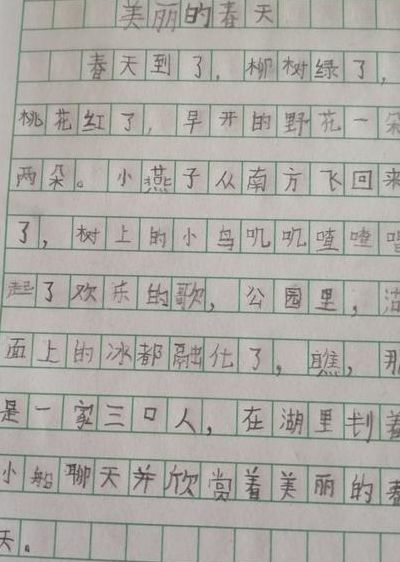 美丽的春天
春天到了，柳树绿了，
桃花红了，早开的野花一朵
两朵。小燕子从南方飞回来
了，树上的小鸟叽叽喳喳唱
起了欢乐的歌，公园里，湖
面上的冰都融化了，瞧，那
是一家三口人，在湖里划着
小船聊天并欣赏着美丽的春
天。